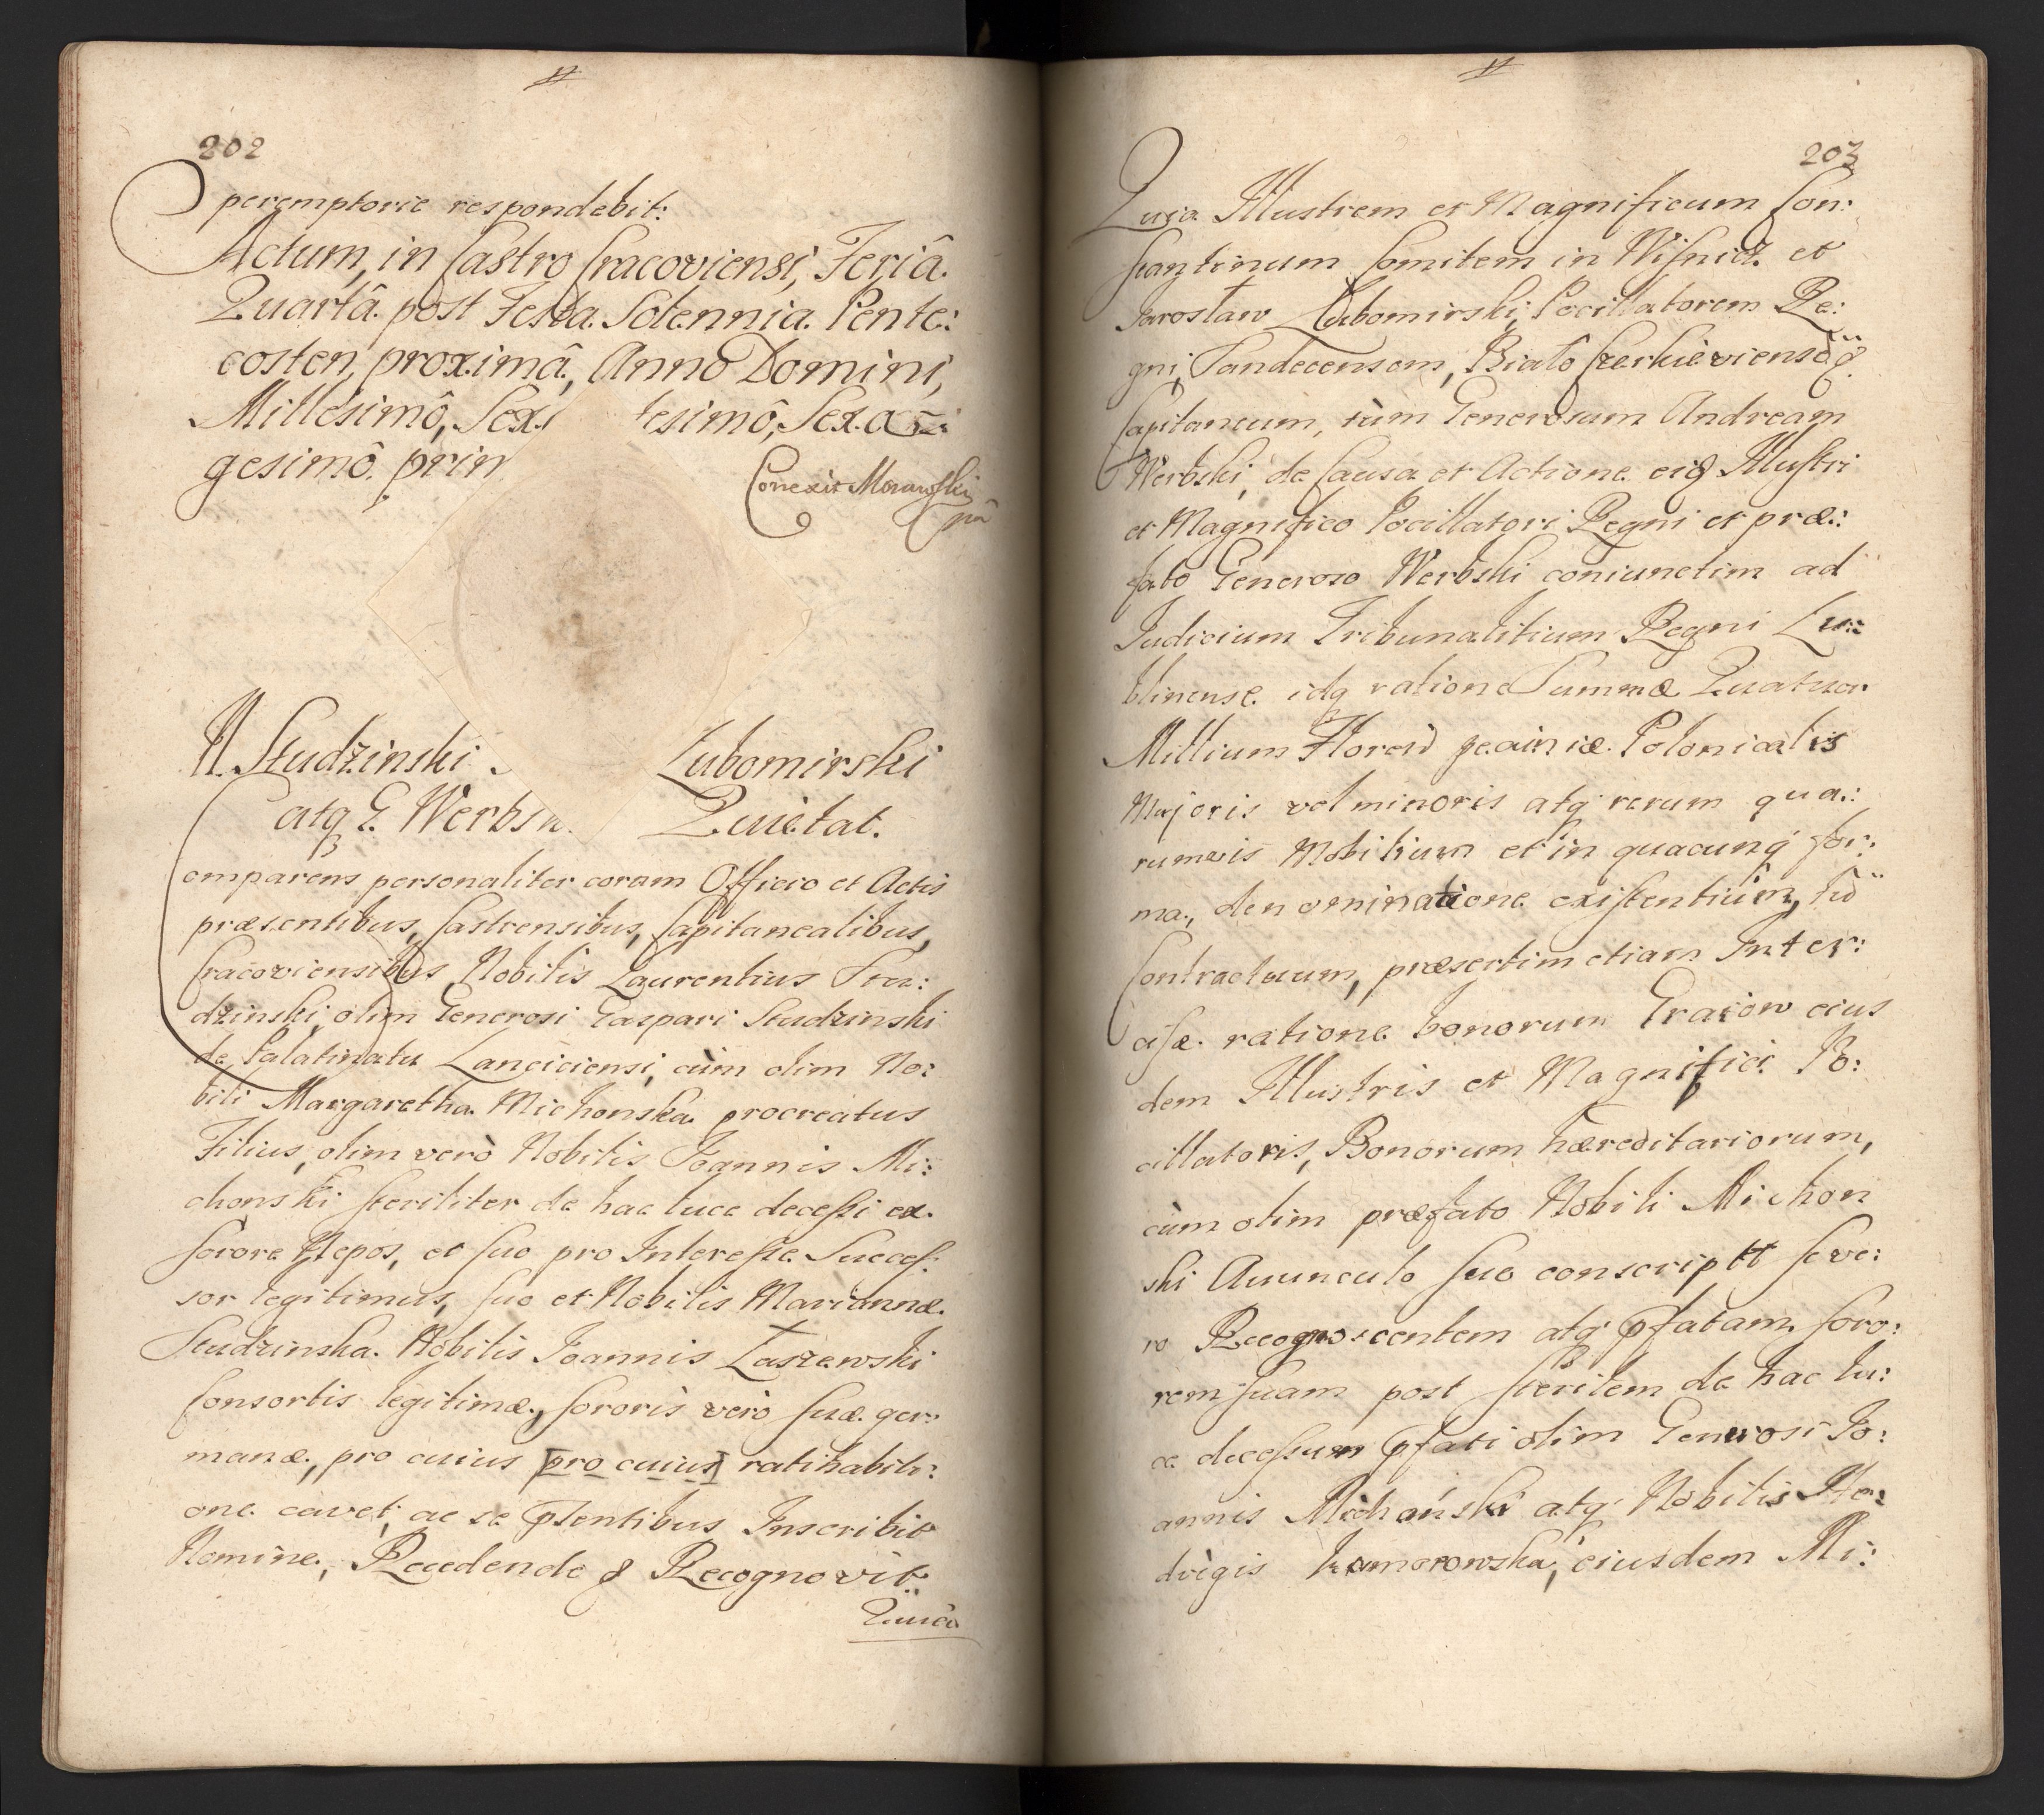 202
peremptorie respondebit:
Actum, in Castro Cracoviensi, Feriâ
Quartâ post Festa Solennia Pente:
costen, proximâ, Anno Domini,
Millesimô, Sex tesimô, Sexa
gesimô prin
Correxit Morawski
mp
N. Studzinski Lubomirski
atq G. Werbsk Quietat.
Comparens personaliter coram Officio et Actis
præsentibus, Castrensibus, Capitanealibus,
Cracoviensibus, Nobilis Laurentius Stu:
dzinski, olim Generosi Gaspari Studzinski
de Palatinatu Lanciciensi, cùm olim No:
bili Margaretha Michonska procreatus
Filius, olim verò Nobilis Joannis Mi:
chonski steriliter de hac luce decessi ex
sorore Nepos, et suo pro Interesse Succes:
sor legitimus, suo et Nobilis Mariannæ
Studzinska Nobilis Joannis Łaszewski
Consortis legitimæ, sororis verò suæ ger:
manæ, pro cuius [pro cuius] ratihabiti:
one cavet, ac se pntentibus Inscribit
Nomine, Recedendo & Recognovit
Quia
203
Quia Illustrem et Magnificum Con:
stantinum Comitem in Wisnicz et
Jaroslaw Lubomirski, Pocillatorem Re:
gni, Sandecensem, Biało Czerkieviensēq
Capitaneum, tùm Generosum Andream
Werbski, de Causa et Actione eid Illustri
et Magnifico Pocillatori Regni et præ:
fato Generoso Werbski coniunctim ad
Judicium Tribunalitium Regni Lu:
blinense idq ratione Summæ Quatuor
Millium Floren pecuniæ Polonicalis
Majoris vel minoris atq rerum qua:
rumvis Mobilium et in quacunq for:
ma, denominatione existentium,
Contractuum, præsertim etiam Inter:
cisæ ratione bonorum Graiow eius
dem Illustris et Magnifici Po:
cillatoris, Bonorum hæreditariorum,
cùm olim præfato Nobili Michon
ski Avunculo suo conscript seve:
ro Recognoscentem atq pfatam soro:
rem suam post sterilem de hac lu:
ce decessum pfati olim Generosi Jo:
annis Michoński atq Nobilis He:
dvigis Komorowska, eiusdem Mi: